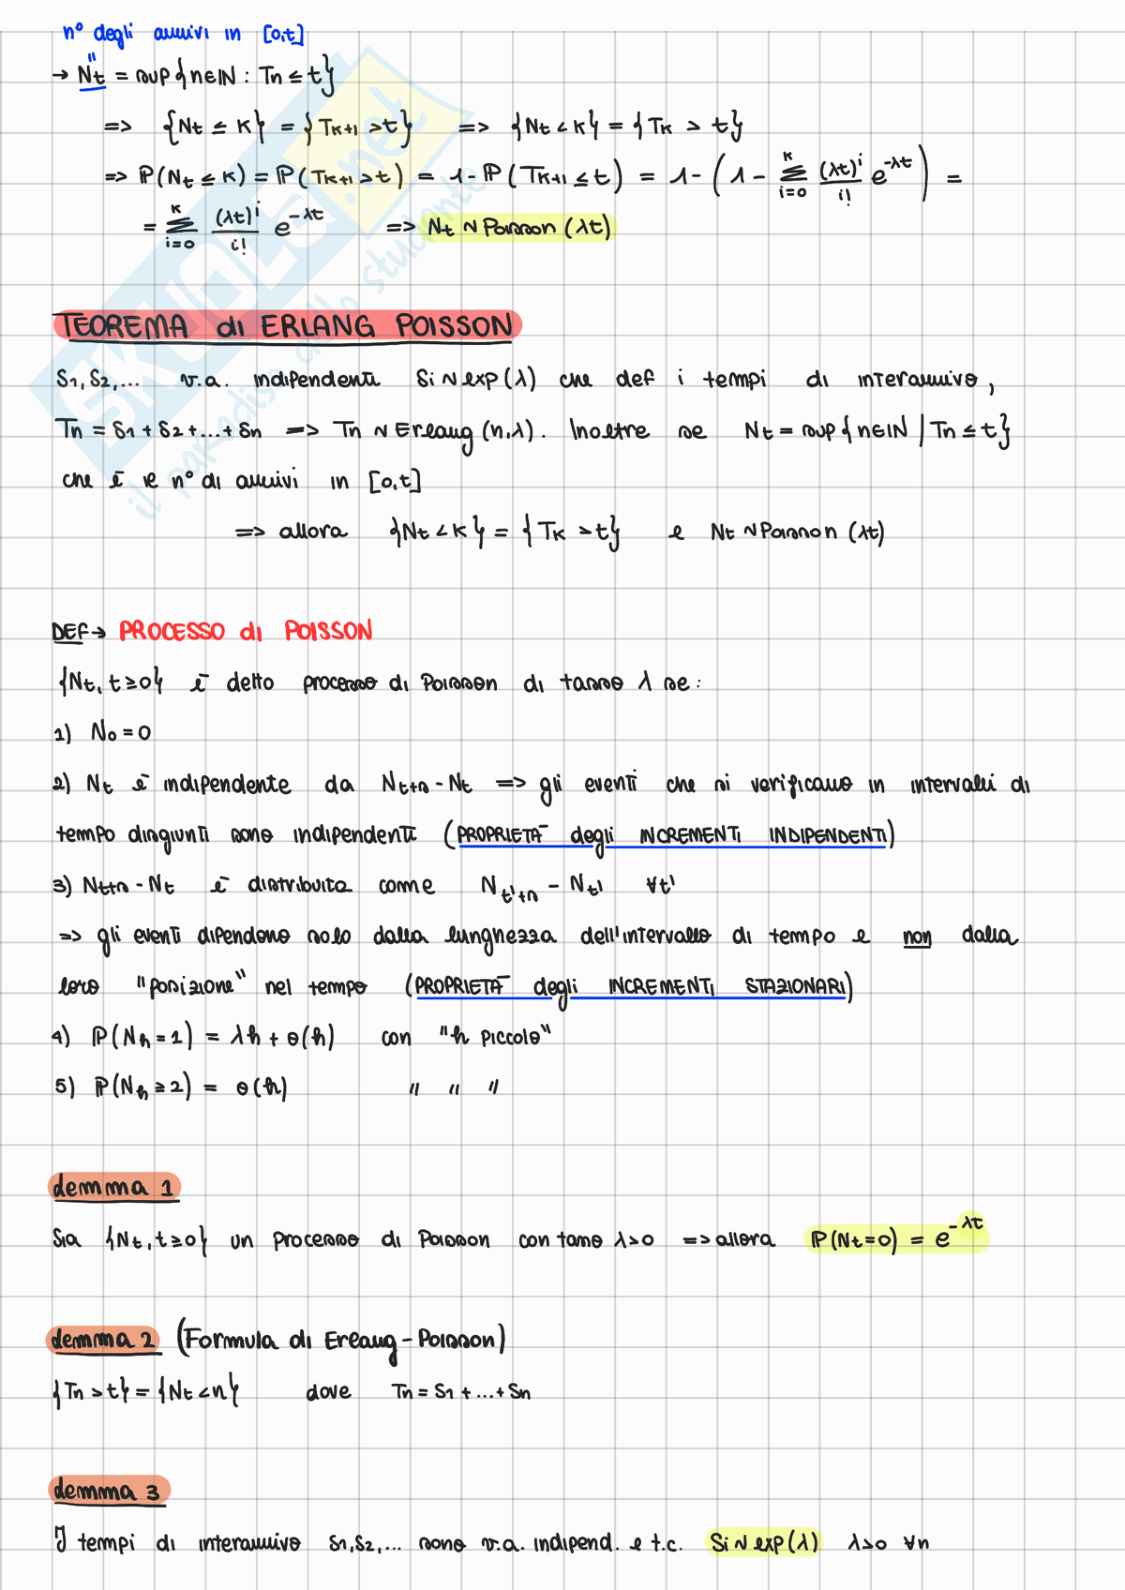 n° degli arrivi in [0,t]
→ Nt = sup{n∈ℕ : Tn ≤ t}
=> {Nt ≤ K} = {TK+1 > t} => {Nt < K} = {TK > t}
=> ℙ(Nt ≤ K) = ℙ(TK+1 > t) = 1 - ℙ(TK+1 ≤ t) = 1 - (1 - Σ_{i=0}^{K} (λt)^i / i! e^{-λt}) =
= Σ_{i=0}^{K} (λt)^i / i! e^{-λt} => Nt ~ Poisson (λt)
TEOREMA di ERLANG POISSON
S1, S2,... v.a. indipendenti Si ~ exp(λ) che def i tempi di interarrivo,
Tn = S1 + S2 +...+ Sn => Tn ~ Erlang (n,λ). Inoltre se Nt = sup{n∈ℕ | Tn ≤ t}
che è il n° di arrivi in [0,t]
=> allora {Nt < K} = {TK > t} e Nt ~ Poisson (λt)
DEF → PROCESSO di POISSON
{Nt, t≥0} è detto processo di Poisson di tasso λ se:
1) N0 = 0
2) Nt è indipendente da Nt+s - Nt => gli eventi che si verificano in intervalli di
tempo disgiunti sono indipendenti (PROPRIETÀ degli INCREMENTI INDIPENDENTI)
3) Nt+s - Nt è distribuita come Nt'+s - Nt' ∀t'
=> gli eventi dipendono solo dalla lunghezza dell'intervallo di tempo e non dalla
loro "posizione" nel tempo (PROPRIETÀ degli INCREMENTI STAZIONARI)
4) ℙ(Nh = 1) = λh + o(h) con "h piccolo"
5) ℙ(Nh ≥ 2) = o(h) " " "
Lemma 1
Sia {Nt, t≥0} un processo di Poisson con tasso λ>0 => allora ℙ(Nt=0) = e^{-λt}
Lemma 2 (Formula di Erlang-Poisson)
{Tn > t} = {Nt < n} dove Tn = S1 + ... + Sn
Lemma 3
I tempi di interarrivo S1, S2,... sono v.a. indipend. e t.c. Si ~ exp(λ) λ>0 ∀n
SKUOLA.net
il paradiso dello studente